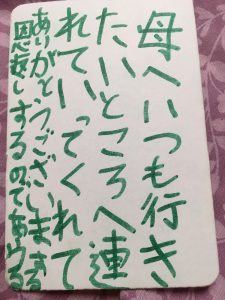 母へいつも行き
たいところへ連
れていってくれて
ありがとうございます
恩返しするので